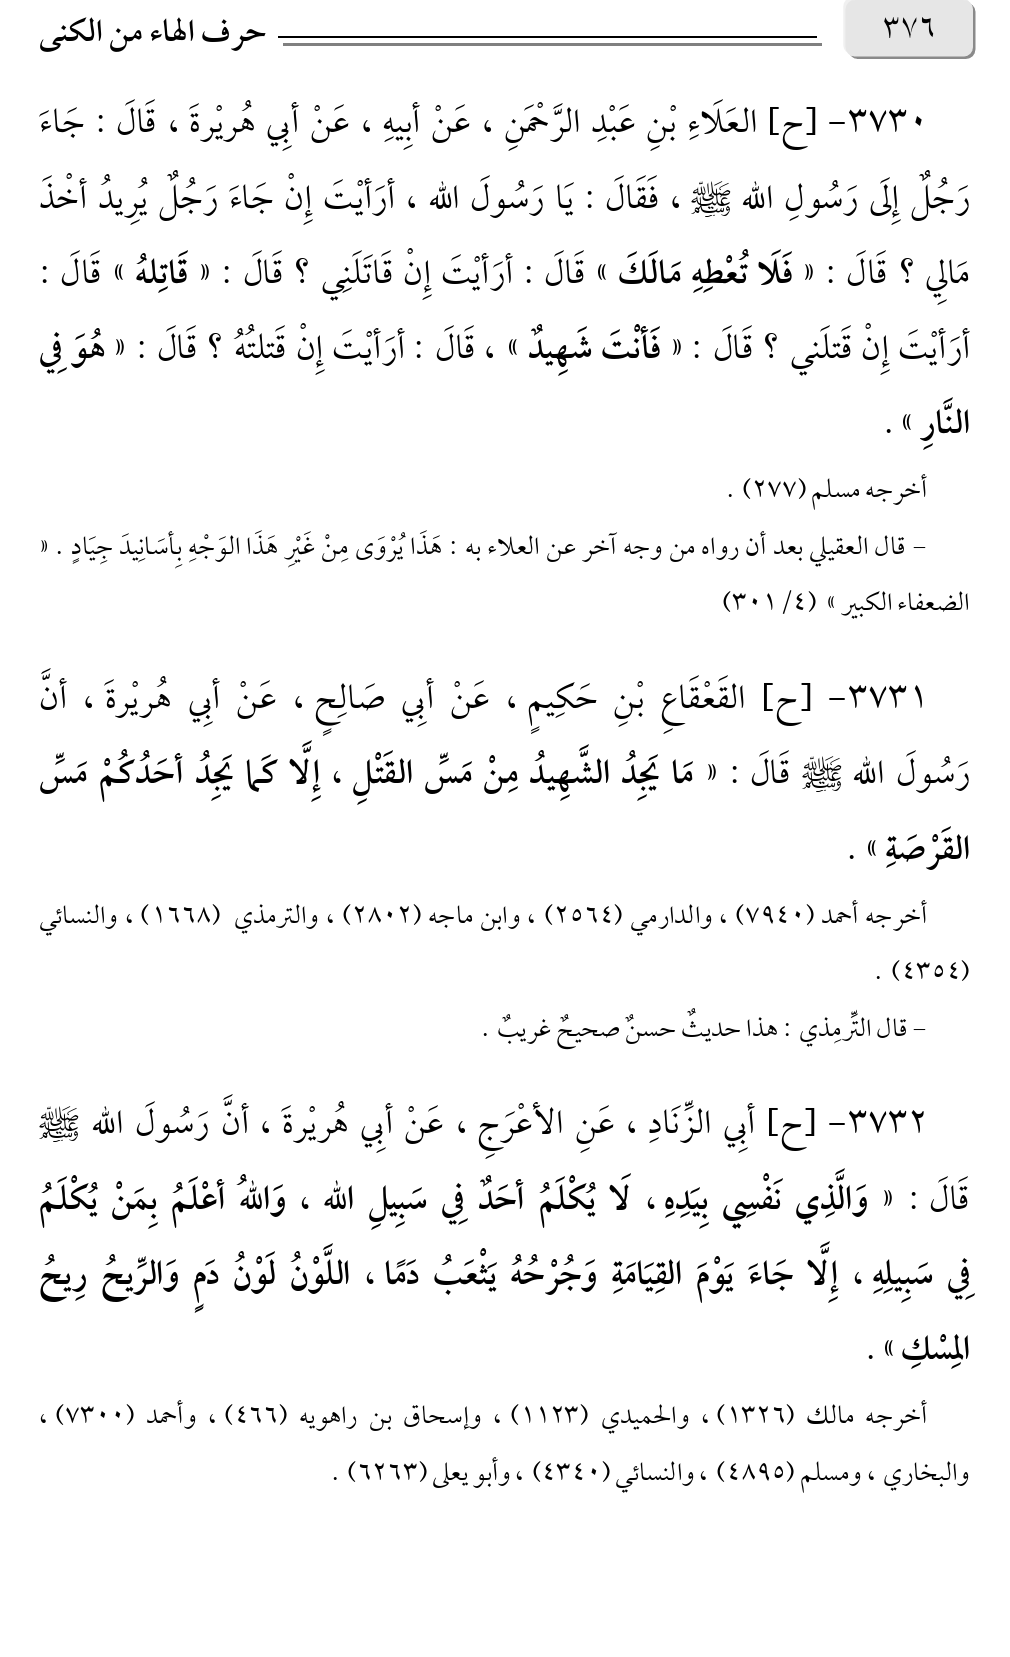 ٣٧٦
حرف الهاء من الكنى
٣٧٣٠- [ح] العَلَاءِ بْنِ عَبْدِ الرَّحْمَنِ ، عَنْ أبِيهِ ، عَنْ أبِي هُريْرةَ ، قَالَ : جَاءَ
رَجُلٌ إِلَى رَسُولِ الله ﷺ ، فَقَالَ : يَا رَسُولَ الله ، أرَأيْتَ إِنْ جَاءَ رَجُلٌ يُرِيدُ أخْذَ
مَالِي ؟ قَالَ : « فَلَا تُعْطِهِ مَالَكَ » قَالَ : أرَأيْتَ إِنْ قَاتَلَنِي ؟ قَالَ : « قَاتِلهُ » قَالَ :
أرَأيْتَ إِنْ قَتلَني ؟ قَالَ : « فَأنْتَ شَهِيدٌ » ، قَالَ : أرَأيْتَ إِنْ قَتلتُهُ ؟ قَالَ : « هُوَ فِي
النَّارِ » .
أخرجه مسلم (٢٧٧) .
– قال العقيلي بعد أن رواه من وجه آخر عن العلاء به : هَذَا يُرْوَى مِنْ غَيْرِ هَذَا الوَجْهِ بِأسَانِيدَ جِيَادٍ . «
الضعفاء الكبير » (٤/ ٣٠١)
٣٧٣١- [ح] القَعْقَاعِ بْنِ حَكِيمٍ ، عَنْ أبِي صَالِحٍ ، عَنْ أبِي هُريْرةَ ، أنَّ
رَسُولَ الله ﷺ قَالَ : « مَا يَجِدُ الشَّهِيدُ مِنْ مَسِّ القَتْلِ ، إِلَّا كَما يَجِدُ أحَدُكُمْ مَسِّ
القَرْصَةِ » .
أخرجه أحمد (٧٩٤٠) ، والدارمي (٢٥٦٤) ، وابن ماجه (٢٨٠٢) ، والترمذي (١٦٦٨) ، والنسائي
(٤٣٥٤) .
– قال التِّرمِذي : هذا حديثٌ حسنٌ صحيحٌ غريبٌ .
٣٧٣٢- [ح] أبِي الزِّنَادِ ، عَنِ الأعْرَجِ ، عَنْ أبِي هُريْرةَ ، أنَّ رَسُولَ الله ﷺ
قَالَ : « وَالَّذِي نَفْسِي بِيَدِهِ ، لَا يُكْلَمُ أحَدٌ فِي سَبِيلِ الله ، وَاللهُ أعْلَمُ بِمَنْ يُكْلَمُ
فِي سَبِيلِهِ ، إِلَّا جَاءَ يَوْمَ القِيَامَةِ وَجُرْحُهُ يَثْعَبُ دَمًا ، اللَّوْنُ لَوْنُ دَمٍ وَالرِّيحُ رِيحُ
المِسْكِ » .
أخرجه مالك (١٣٢٦) ، والحميدي (١١٢٣) ، وإسحاق بن راهويه (٤٦٦) ، وأحمد (٧٣٠٠) ،
والبخاري ، ومسلم (٤٨٩٥) ، والنسائي (٤٣٤٠) ، وأبو يعلى (٦٢٦٣) .